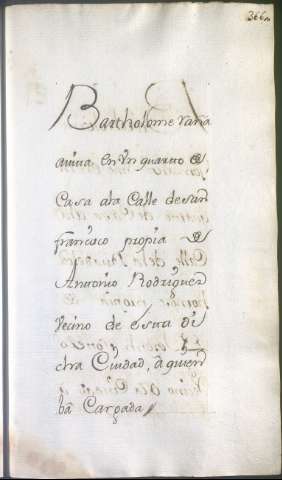 366
Bartholome Varia
auita en Vn quarto de
Casa ala Calle de san
francisco propia de
Antonio Rodriguez
Vecino de esta di
cha Ciudad, â quien
bâ Cargada